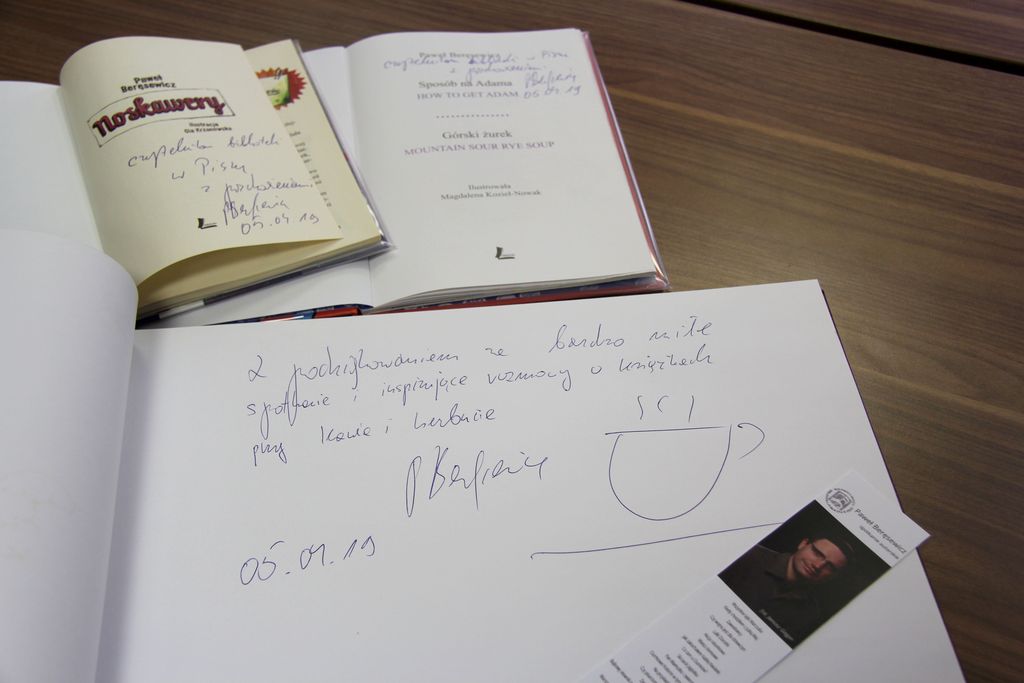 Paweł
Beręsewicz
Noskawery
Ilustracje
Ola Krzanowska
czytelnikom biblioteki
w Piszu
z pozdrowieniami
PBeręsewicz
05.04.19
Paweł Beręsewicz
czytelnikom biblioteki w Piszu
z pozdrowieniami
Sposób na Adama
HOW TO GET ADAM
05.04.19
Górski żurek
MOUNTAIN SOUR RYE SOUP
Ilustrowała
Magdalena Kozieł-Nowak
Z podziękowaniem za bardzo miłe
spotkanie i inspirujące rozmowy o książkach
przy kawie i herbacie
PBeręsewicz
05.04.19
Paweł Beręsewicz
spotkanie autorskie